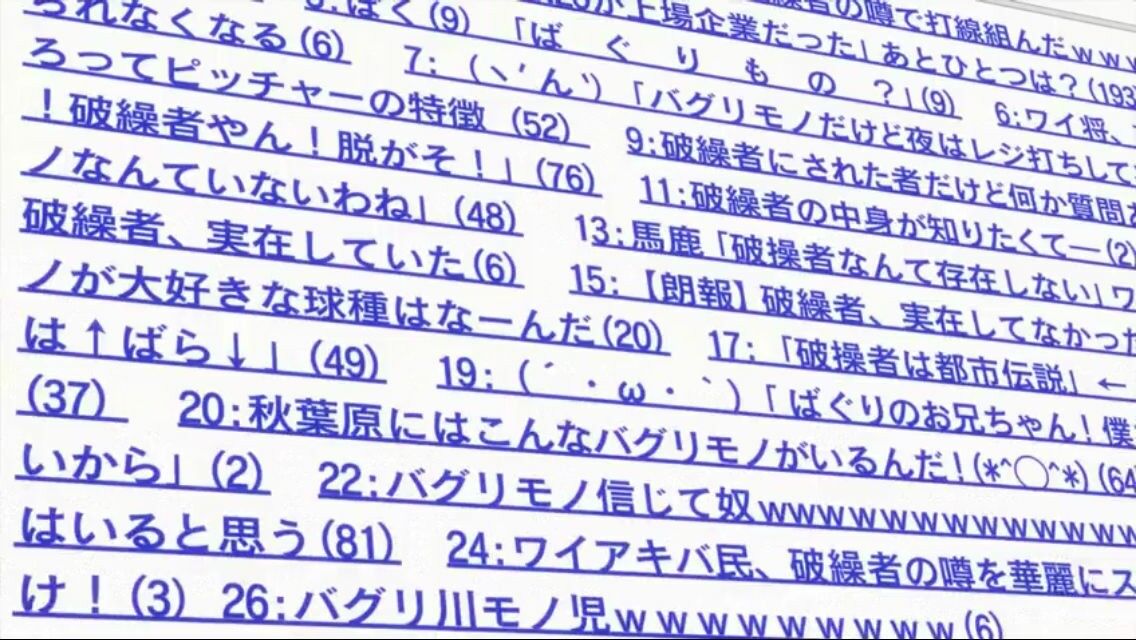 られなくなる(6)　5:ばく(9)　「ば　ぐ　り　も　の　？」(9)　6:ワイ将、
が上場企業だった」あとひとつは？(193
の噂で打線組んだｗｗｗ
ろってピッチャーの特徴 (52)　7: (ヽ´ん`)「バグリモノだけど夜はレジ打ちして
！破繰者やん！脱がそ！」(76)　9:破繰者にされた者だけど何か質問
ノなんていないわね」(48)　11:破繰者の中身が知りたくて―(2)
破繰者、実在していた(6)　13:馬鹿「破操者なんて存在しない」ワ
ノが大好きな球種はなーんだ(20)　15:【朗報】破繰者、実在してなかった
は↑ばら↓」(49)　17:「破操者は都市伝説」←
(37)　19: (´・ω・｀)「ばぐりのお兄ちゃん！僕
いから」(2)　20:秋葉原にはこんなバグリモノがいるんだ！(*^◯^*) (64
はいると思う(81)　22:バグリモノ信じて奴ｗｗｗｗｗｗｗｗｗｗｗｗ
け！(3)　24:ワイアキバ民、破繰者の噂を華麗にス
26:バグリ川モノ児ｗｗｗｗｗｗｗｗｗ(6)